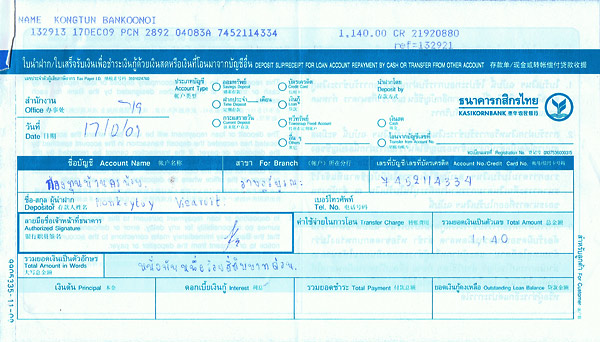 NAME KONGTUN BANKOONOI
132913 17DEC09 PCN 2892 04083A 7452114334 1,140.00 CR 21920880
ref=132921
ใบนำฝาก/ใบเสร็จรับเงินเพื่อชำระเงินกู้ด้วยเงินสดหรือเงินที่โอนมาจากบัญชีอื่น DEPOSIT SLIP/RECEIPT FOR LOAN ACCOUNT REPAYMENT BY CASH OR TRANSFER FROM OTHER ACCOUNT
ประเภทบัญชี Account Type 帐户类型
ออมทรัพย์ Savings
บัตรเครดิต Credit Card
นำฝากโดย Deposit by 存款方式
ฝากประจำ เดือน
เงินกู้ Loan
กระแสรายวัน Current Deposit
เงินสด Cash
อื่น ๆ Others
โอนจากบัญชีเลขที่ Transfer from Account No.
สำนักงาน Office 办事处
วันที่ Date 日期 17/12/09
ธนาคารกสิกรไทย
KASIKORNBANK 泰华农民银行
ชื่อบัญชี Account Name 帐户名称 สาขา For Branch เลขที่บัญชี/เลขที่บัตรเครดิต Account No./Credit Card No.
7452114334
ชื่อ-สกุล ผู้นำฝาก Depositor 存款人姓名 เบอร์โทรศัพท์ Tel. No. 电话号码
ลายมือชื่อเจ้าหน้าที่ธนาคาร Authorized Signature 银行职员签名
ค่าใช้จ่ายในการโอน Transfer Charge รวมยอดเงินเป็นตัวเลข Total Amount 总金额
1,140
รวมยอดเงินเป็นตัวอักษร Total Amount in Words 大写总金额 หนึ่งพันหนึ่งร้อยสี่สิบบาทถ้วน
เงินต้น Principal 本金 ดอกเบี้ยเงินกู้ Interest รวมยอดชำระ Total Payment 付款总额 ยอดเงินกู้คงเหลือ Outstanding Loan Balance
สำหรับลูกค้า For Customer